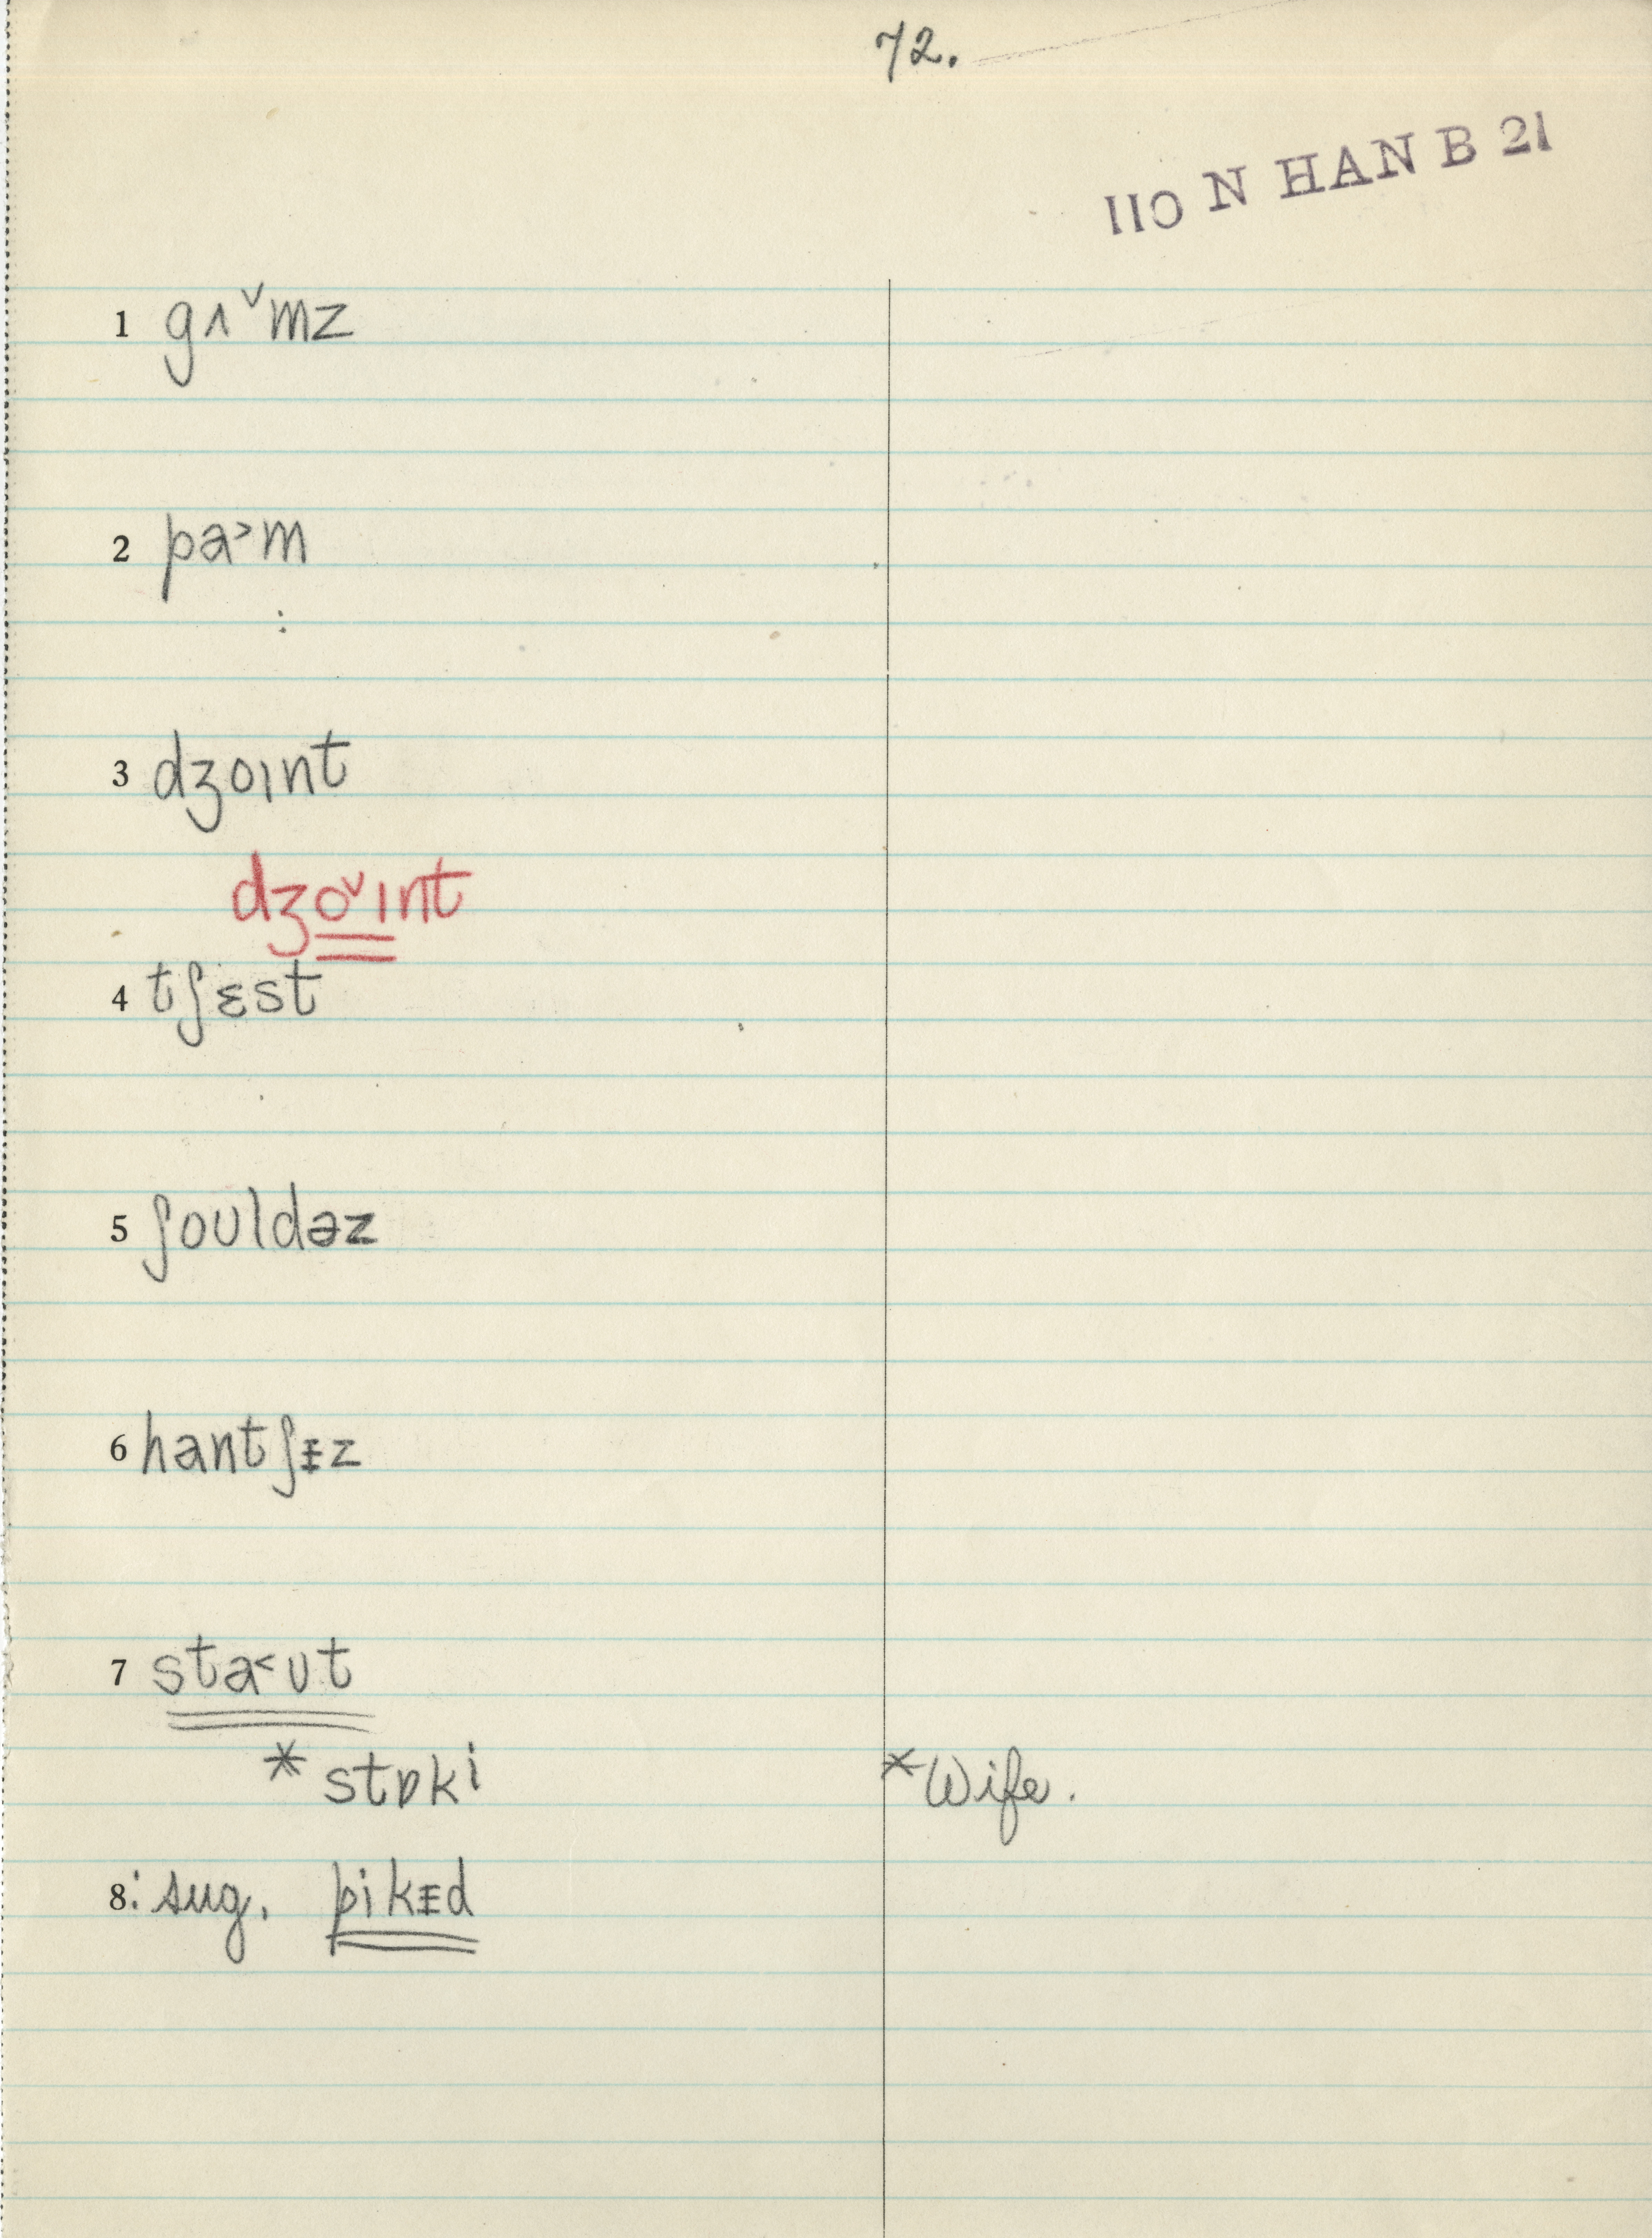 72.
110 N HAN B 21
1 gʌ˅mz
2 pa˃m
3 dʒoɪnt
dʒo˅ɪnt
4 tʃɛst
5 ʃoʊldəz
6 hantʃᵻz
7 sta˂ʊt
* stɒki *Wife.
8: sug. pikᵻd